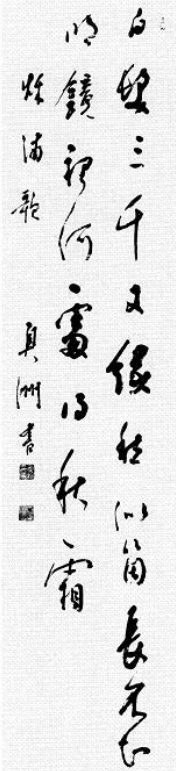 白髮三千丈緣愁似箇長不知
明鏡裡何處得秋霜
秋浦歌 洲書